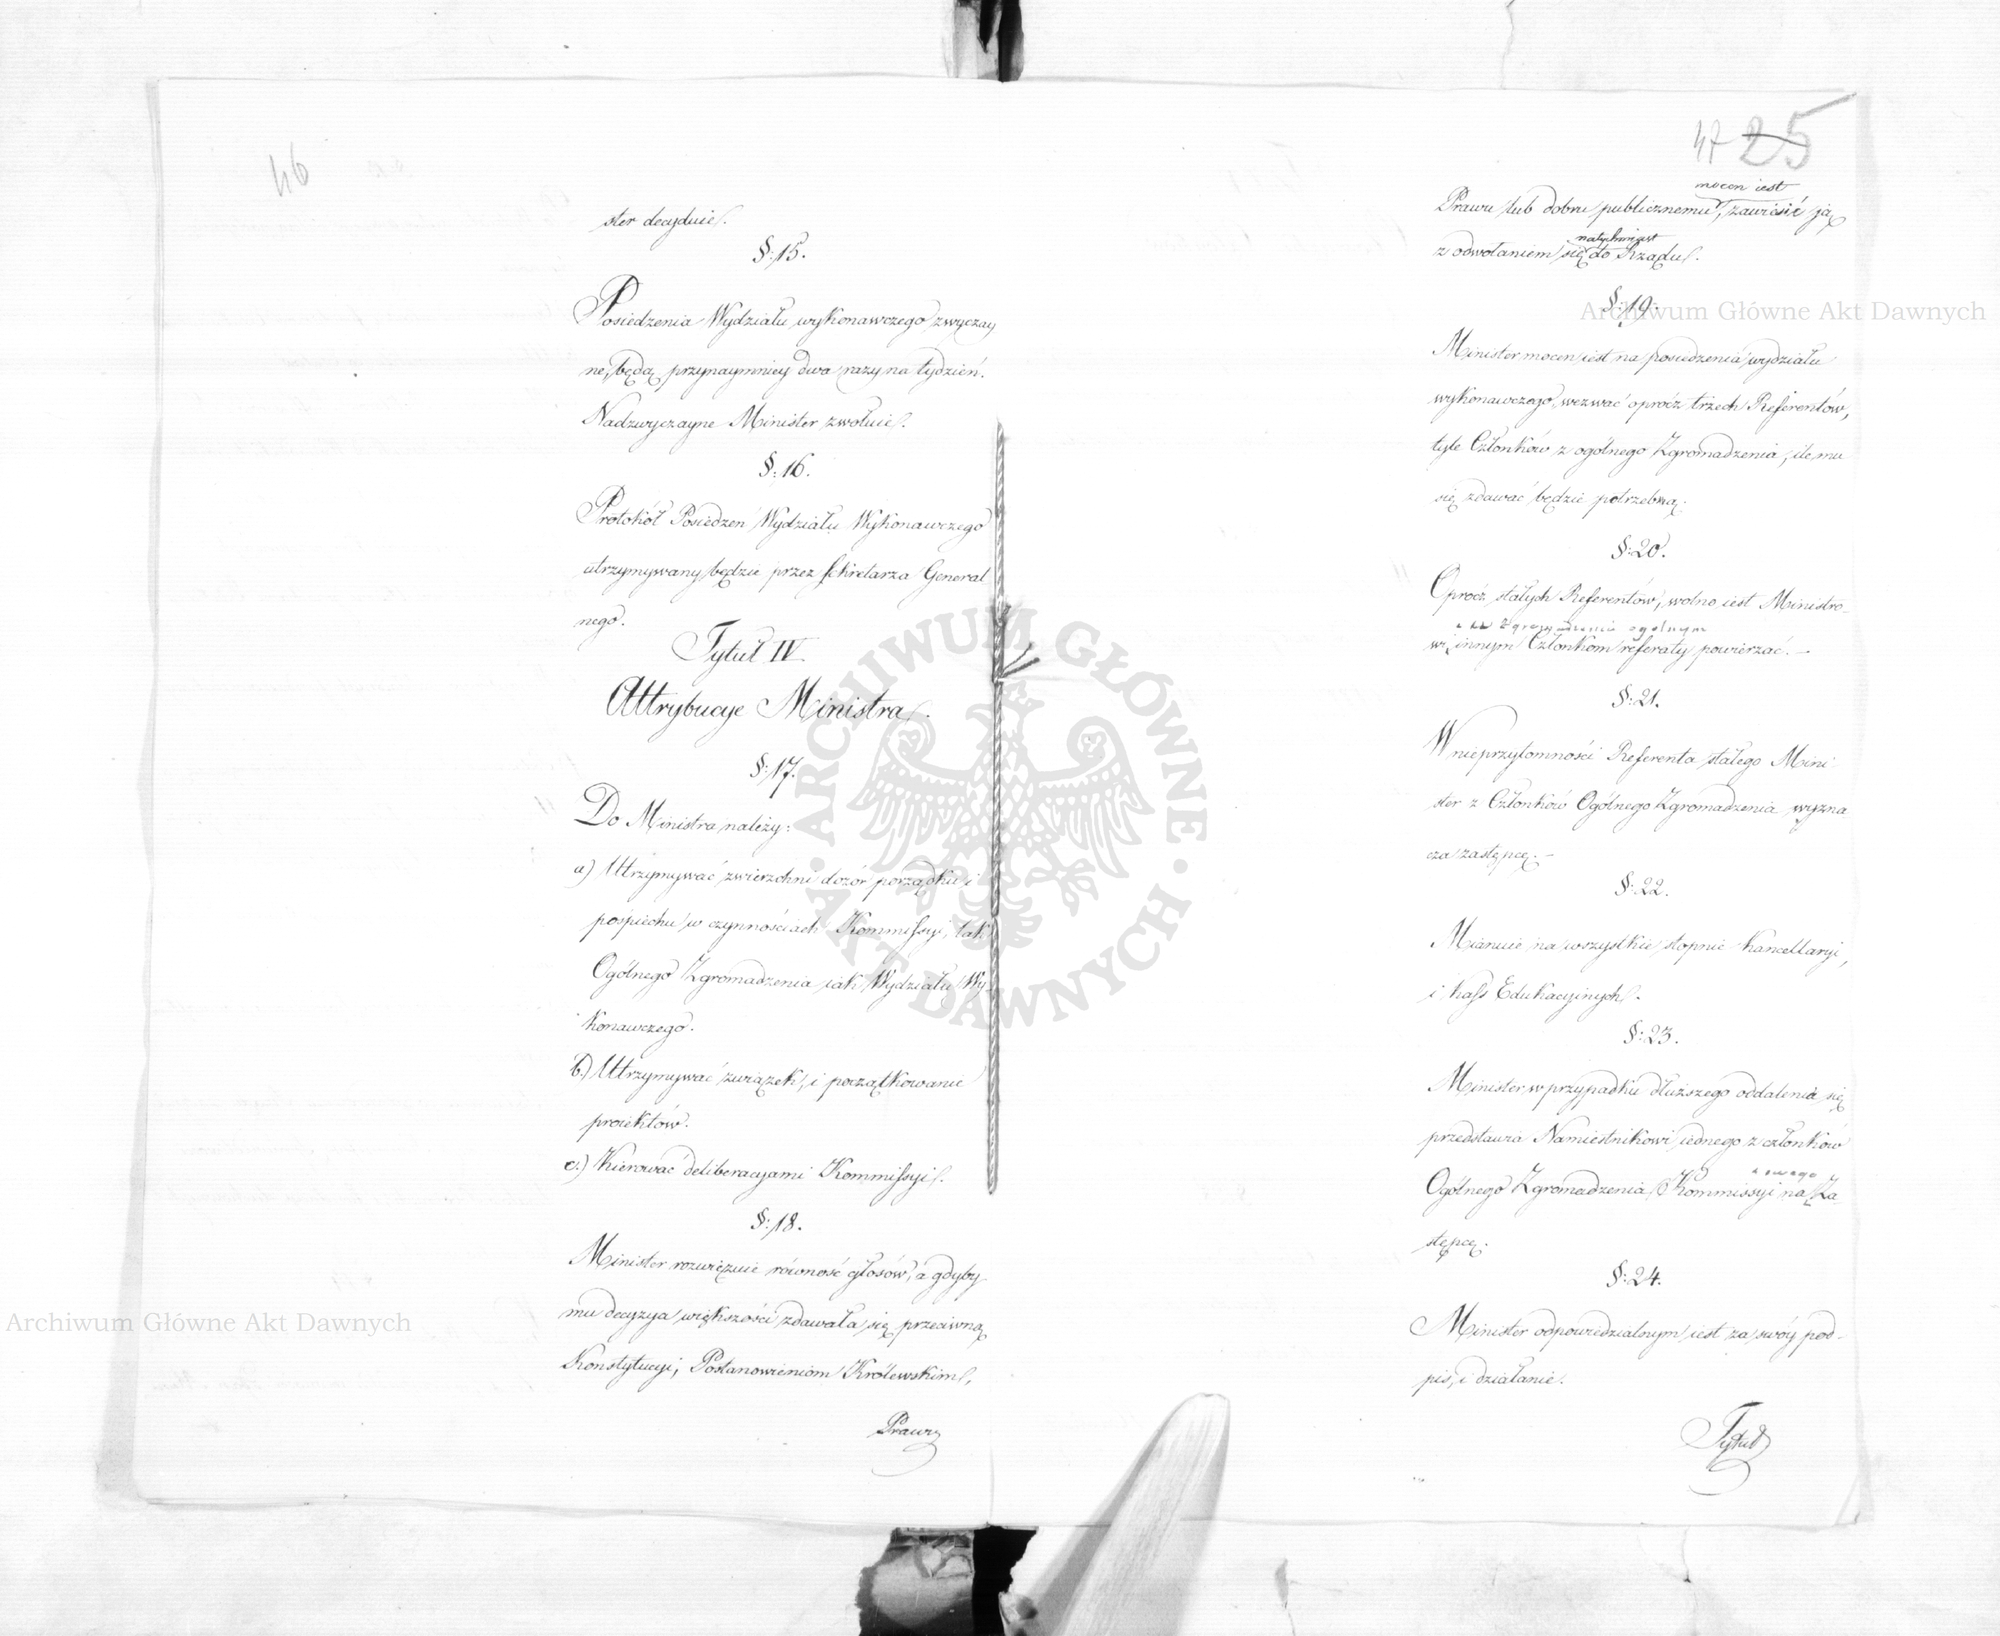 46
ster decyduie.
§: 15.
Posiedzenia Wydziału wykonawczego zwyczay
ne, będą przynaymniey dwa razy na tydzień.
Nadzwyczayne Minister zwołuie.
§: 16.
Protokół Posiedzeń Wydziału Wykonawczego
utrzymywany będzie przez Sekretarza General
nego.
Tytuł IV
Attrybucye Ministra.
§: 17.
Do Ministra należy:
a) Utrzymywać zwierzchni dozór porządku i
pośpiechu w czynnościach Kommissyi, tak
Ogólnego Zgromadzenia iak Wydziału Wy-
konawczego.
b.) Utrzymywać związek, i początkowanie
proiektów.
c.) Kierować deliberacyami Kommissyi.
§: 18.
Minister rozwięzuie równość głosów, a gdyby
mu decyzya większości zdawała się przeciwną
Konstytucyi, Postanowieniom Królewskim,
Prawu
47 25
mocen iest
Prawu lub dobru publicznemu, zawiesić ją
natychmiast
z odwołaniem się do Rządu.
§: 19.
Minister mocen iest na posiedzenia wydziału
wykonawczego, wezwać oprócz trzech Referentów,
tyle Członków z ogólnego Zgromadzenia, ile mu
się zdawać będzie potrzebną.
§: 20.
Oprócz stałych Referentów, wolno iest Ministro-
Zgromadzenia ogólnym
wi innym Członkom referaty powierzać. —
§: 21.
W nieprzytomności Referenta stałego Mini
ster z Członków Ogólnego Zgromadzenia wyzna
cza zastępcę. —
§: 22.
Mianuie na wszystkie stopnie kancellaryi,
i kass Edukacyinych.
§: 23.
Minister w przypadku dłuższego oddalenia się
przedstawia Namiestnikowi iednego z członków
swego
Ogólnego Zgromadzenia Kommissyi na Za-
stępcę.
§: 24.
Minister odpowiedzialnym iest za swóy pod-
pis, i działanie.
Tytuł
Archiwum Główne Akt Dawnych
Archiwum Główne Akt Dawnych
ARCHIWUM GŁÓWNE · AKT DAWNYCH ·